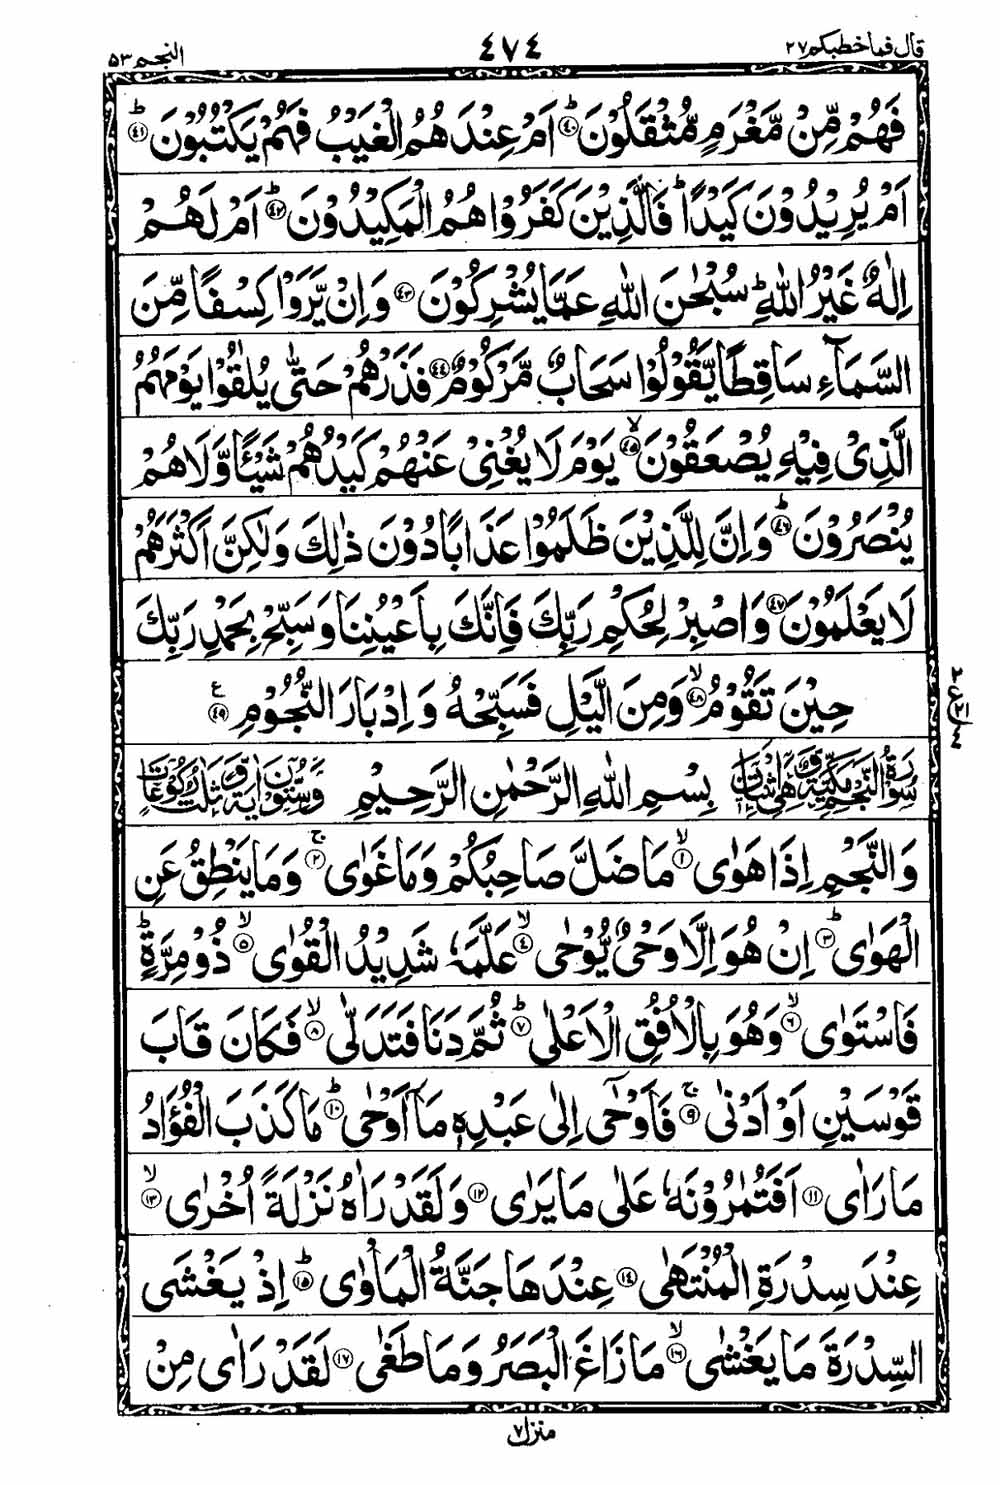 قال فما خطبكم ٢٧ ٤٧٤ النجم ٥٣
فَهُمْ مِّنْ مَّغْرَمٍ مُّثْقَلُوْنَ ؕ‏﴿٤٠﴾ اَمْ عِنْدَهُمُ الْغَيْبُ فَهُمْ يَكْتُبُوْنَ ؕ‏﴿٤١﴾
اَمْ يُرِيْدُوْنَ كَيْدًا ؕ فَالَّذِيْنَ كَفَرُوْا هُمُ الْمَكِيْدُوْنَ ؕ‏﴿٤٢﴾ اَمْ لَهُمْ
اِلٰهٌ غَيْرُ اللّٰهِ ؕ سُبْحٰنَ اللّٰهِ عَمَّا يُشْرِكُوْنَ ﴿٤٣﴾ وَاِنْ يَّرَوْا كِسْفًا مِّنَ
السَّمَآءِ سَاقِطًا يَّقُوْلُوْا سَحَابٌ مَّرْكُوْمٌ ﴿٤٤﴾ فَذَرْهُمْ حَتّٰى يُلٰقُوْا يَوْمَهُمُ
الَّذِىْ فِيْهِ يُصْعَقُوْنَ ۙ‏﴿٤٥﴾ يَوْمَ لَا يُغْنِىْ عَنْهُمْ كَيْدُهُمْ شَيْـًٔا وَّلَا هُمْ
يُنْصَرُوْنَ ؕ‏﴿٤٦﴾ وَاِنَّ لِلَّذِيْنَ ظَلَمُوْا عَذَابًا دُوْنَ ذٰلِكَ وَلٰكِنَّ اَكْثَرَهُمْ
لَا يَعْلَمُوْنَ ﴿٤٧﴾ وَاصْبِرْ لِحُكْمِ رَبِّكَ فَاِنَّكَ بِاَعْيُنِنَا وَسَبِّحْ بِحَمْدِ رَبِّكَ
حِيْنَ تَقُوْمُ ۙ‏﴿٤٨﴾ وَمِنَ الَّيْلِ فَسَبِّحْهُ وَاِدْبَارَ النُّجُوْمِ ﴿٤٩﴾ ع
سُوْرَةُ النَّجْمِ مَكِّيَّةٌ وَّهِىَ اثْنَتَانِ بِسْمِ اللّٰهِ الرَّحْمٰنِ الرَّحِيْمِ وَسِتُّوْنَ اٰيَةً وَّثَلٰثُ رُكُوْعَاتٍ
وَالنَّجْمِ اِذَا هَوٰى ۙ‏﴿١﴾ مَا ضَلَّ صَاحِبُكُمْ وَمَا غَوٰى ۚ‏﴿٢﴾ وَمَا يَنْطِقُ عَنِ
الْهَوٰى ؕ‏﴿٣﴾ اِنْ هُوَ اِلَّا وَحْىٌ يُّوْحٰى ۙ‏﴿٤﴾ عَلَّمَهٗ شَدِيْدُ الْقُوٰى ۙ‏﴿٥﴾ ذُوْ مِرَّةٍ ؕ
فَاسْتَوٰى ۙ‏﴿٦﴾ وَهُوَ بِالْاُفُقِ الْاَعْلٰى ؕ‏﴿٧﴾ ثُمَّ دَنَا فَتَدَلّٰى ۙ‏﴿٨﴾ فَكَانَ قَابَ
قَوْسَيْنِ اَوْ اَدْنٰى ۚ‏﴿٩﴾ فَاَوْحٰۤى اِلٰى عَبْدِهٖ مَاۤ اَوْحٰى ؕ‏﴿١٠﴾ مَا كَذَبَ الْفُؤَادُ
مَا رَاٰى ﴿١١﴾ اَفَتُمٰرُوْنَهٗ عَلٰى مَا يَرٰى ﴿١٢﴾ وَلَقَدْ رَاٰهُ نَزْلَةً اُخْرٰى ۙ‏﴿١٣﴾
عِنْدَ سِدْرَةِ الْمُنْتَهٰى ﴿١٤﴾ عِنْدَهَا جَنَّةُ الْمَاْوٰى ؕ‏﴿١٥﴾ اِذْ يَغْشَى
السِّدْرَةَ مَا يَغْشٰى ۙ‏﴿١٦﴾ مَا زَاغَ الْبَصَرُ وَمَا طَغٰى ﴿١٧﴾ لَقَدْ رَاٰى مِنْ
منزل ٧